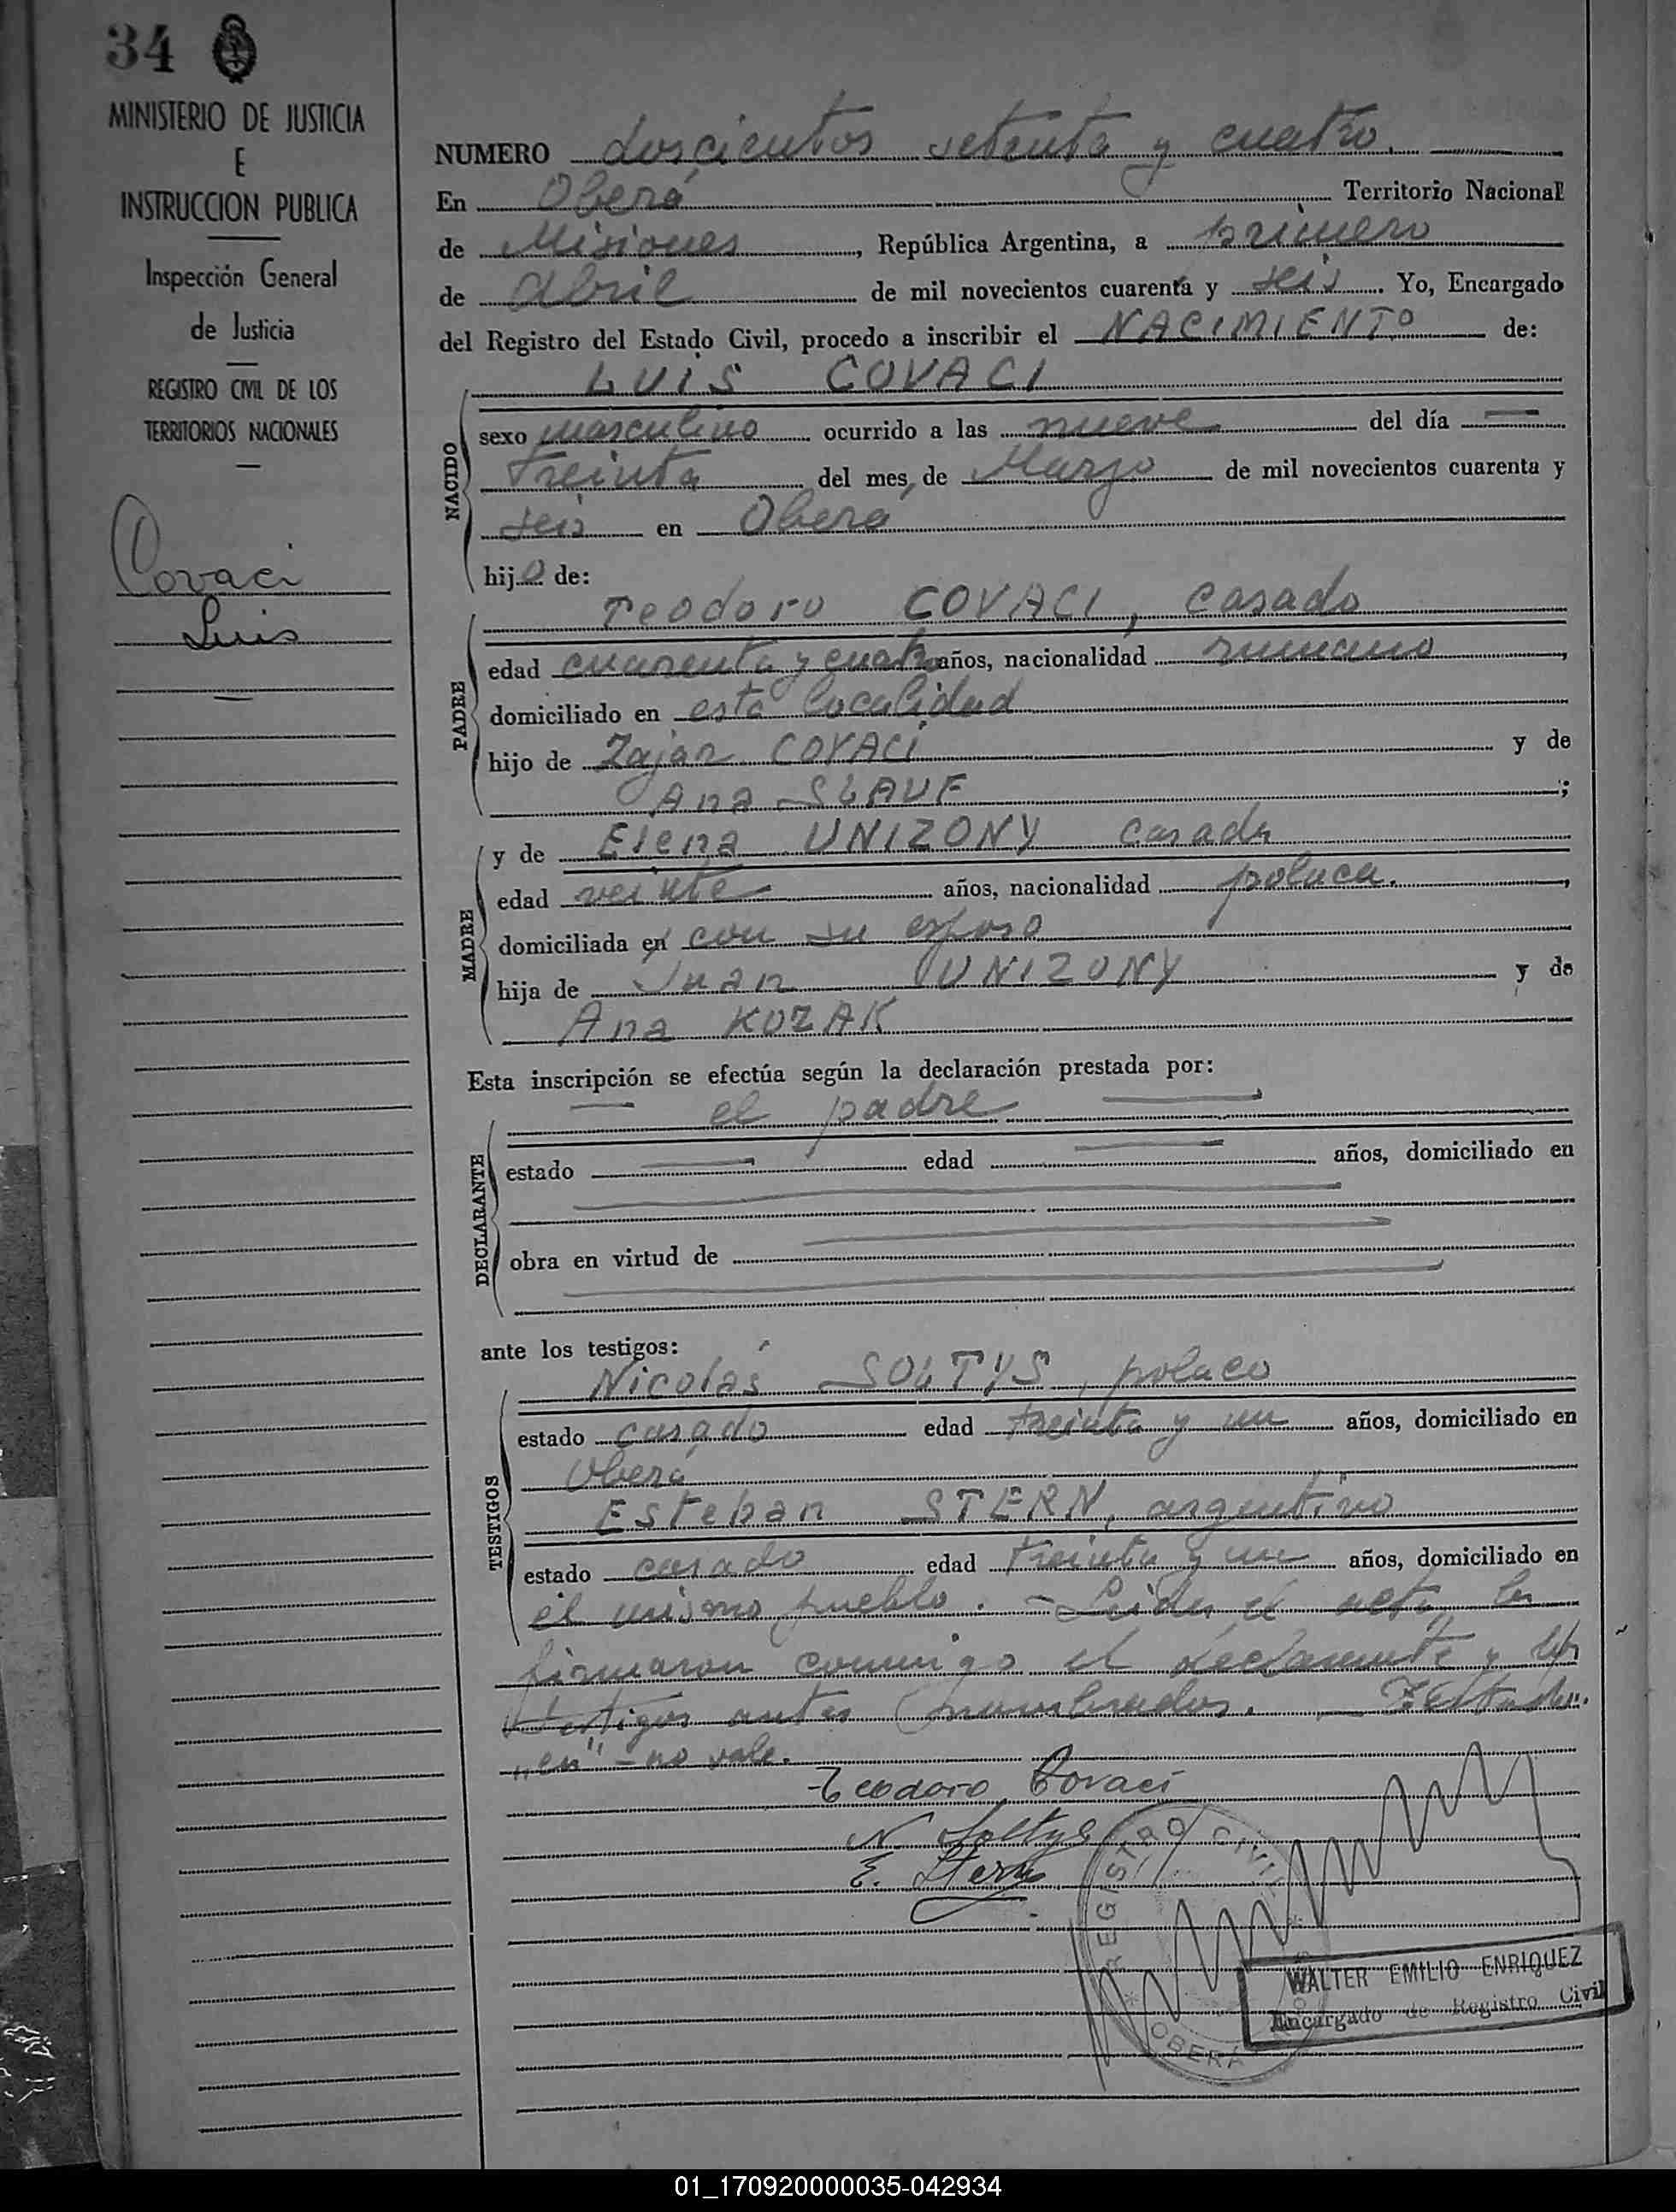 34
MINISTERIO DE JUSTICIA
E
INSTRUCCION PUBLICA
Inspección General
de Justicia
REGISTRO CIVIL DE LOS
TERRITORIOS NACIONALES
Covaci
Luis
NUMERO doscientos setenta y cuatro.
En Oberá Territorio Nacional
de Misiones, República Argentina, a primero
de abril de mil novecientos cuarenta y seis. Yo, Encargado
del Registro del Estado Civil, procedo a inscribir el NACIMIENTO de:
LUIS COVACI
NACIDO
sexo masculino ocurrido a las nueve del día
treinta del mes de Marzo de mil novecientos cuarenta y
seis en Oberá
hijo de:
PADRE
Teodoro COVACI, casado
edad cuarenta y cuatro años, nacionalidad rumano,
domiciliado en esta localidad
hijo de Zajar COVACI y de
Ana SLAUF;
MADRE
y de Elena UNIZONY casada
edad veinte años, nacionalidad polaca.,
domiciliada en con su esposo
hija de Juan UNIZONY y de
Ana KOZAK
Esta inscripción se efectúa según la declaración prestada por:
DECLARANTE
el padre
estado edad años, domiciliado en
obra en virtud de
ante los testigos:
TESTIGOS
Nicolás SOLTYS, polaco
estado casado edad treinta y un años, domiciliado en
Oberá
Esteban STERN, argentino
estado casado edad treinta y un años, domiciliado en
el mismo pueblo. - Leida el acta, la
firmaron conmigo el declarante y los
testigos antes nombrados. - Testado:
"en" - no vale.
Teodoro Covaci
N Soltys
E. Stern
REGISTRO CIVIL
OBERÁ
WALTER EMILIO ENRIQUEZ
Encargado de Registro Civil
01_170920000035-042934